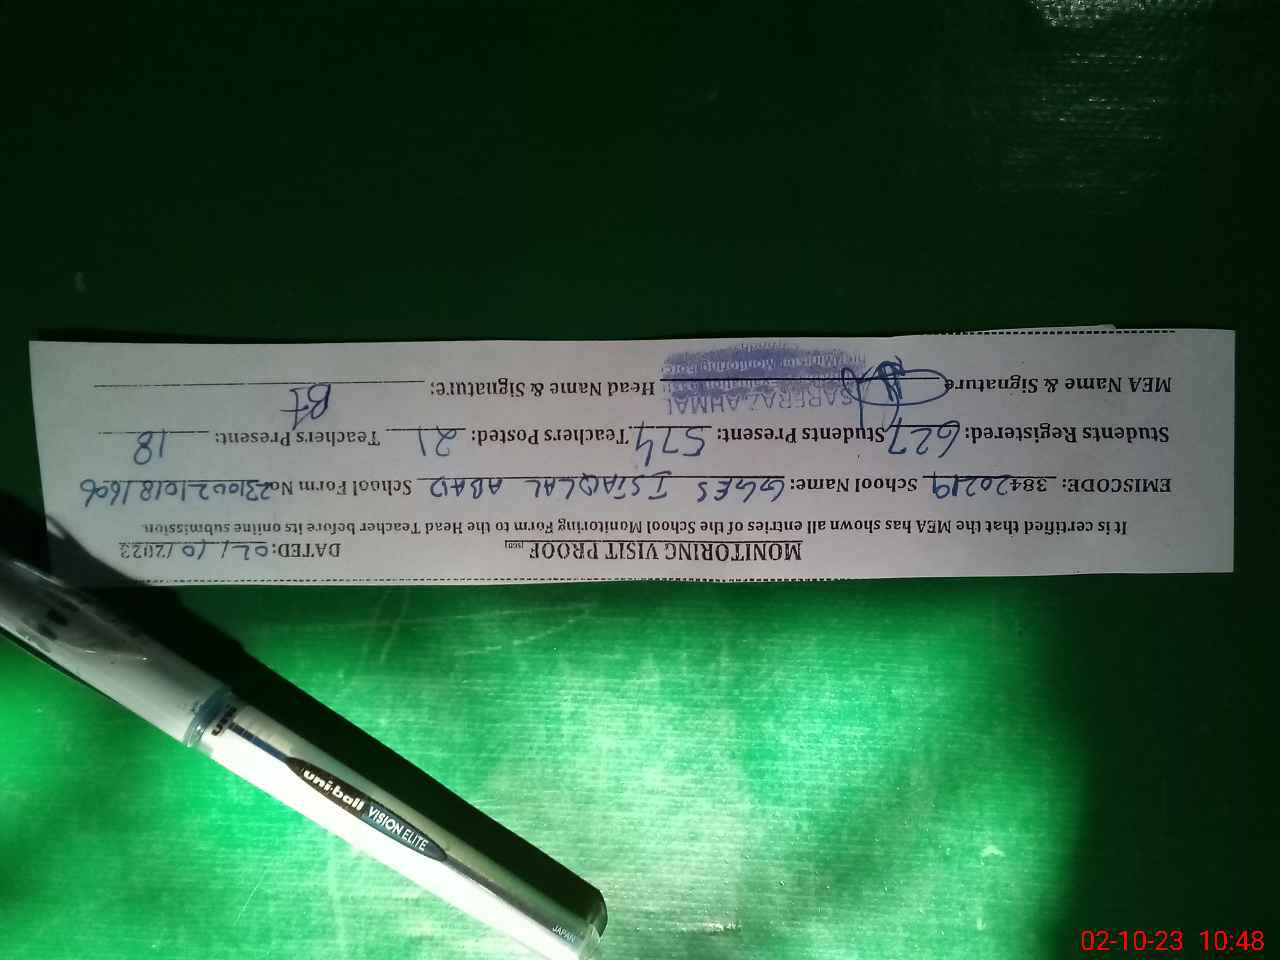 MONITORING VISIT PROOF
DATED: 02/10/2023
It is certified that the MEA has shown all entries of the School Monitoring Form to the Head Teacher before its online submission.
EMISCODE: 384 20219 School Name: GGES ISTAQLAL ABAD School Form No. 23100210181606
Students Registered: 627 Students Present: 574 Teachers Posted: 21 Teachers Present: 18
MEA Name & Signature Head Name & Signature:
SARFRAZ AHMAD
uni
uni-ball VISION ELITE
JAPAN
02-10-23 10:48